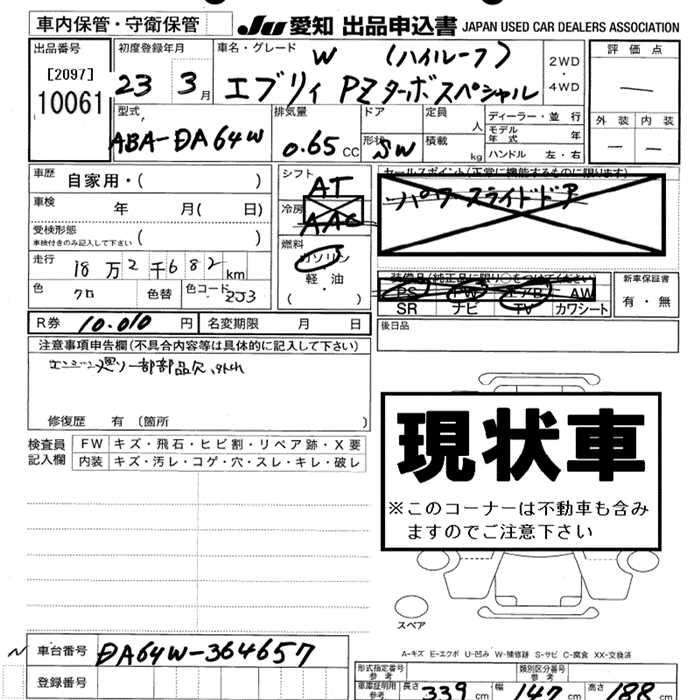 車内保管・守衛保管 JU 愛知 出品申込書 JAPAN USED CAR DEALERS ASSOCIATION
出品番号 [2097] 10061
初度登録年月 23 3月
車名・グレード W (ハイルーフ)
エブリィ PZターボスペシャル
2WD・4WD
評価点 —
外装 — 内装 —
型式 ABA-DA64W
排気量 0.65 CC
ドア 形状 SW
定員 人 積載 kg
ディーラー・並行
モデル年式 年
ハンドル 左・右
車歴 自家用・( )
車検 年 月( 日)
受検形態 車検付きのみ記入して下さい ( )
走行 18万2千682km
色 クロ 色替 色コード ZJ3
シフト AT
冷房 AAC
燃料 ガソリン
軽・油
( )
セールスポイント(正常に機能するものに限ります)
パワースライドドア
装備品(純正品に限り○をつけてください)
PS PW エアB AW
SR ナビ TV カワシート
新車保証書 有・無
R券 10.010 円 名変期限 月 日
後日品
注意事項申告欄(不具合内容等は具体的に記入して下さい)
エンジン廻り一部部品欠、外れ
修復歴 有 〔箇所 〕
検査員記入欄
FW キズ・飛石・ヒビ割・リペア跡・X要
内装 キズ・汚レ・コゲ・穴・スレ・キレ・破レ
現状車
※このコーナーは不動車も含み
ますのでご注意下さい
スペア
A-キズ E-エクボ U-凹み W-補修跡 S-サビ C-腐食 XX-交換済
車台番号 DA64W-364657
登録番号
形式指定番号 参考 類別区分番号 参考
車庫証明用 参考 長さ 339 cm 幅 147 cm 高さ 188 cm